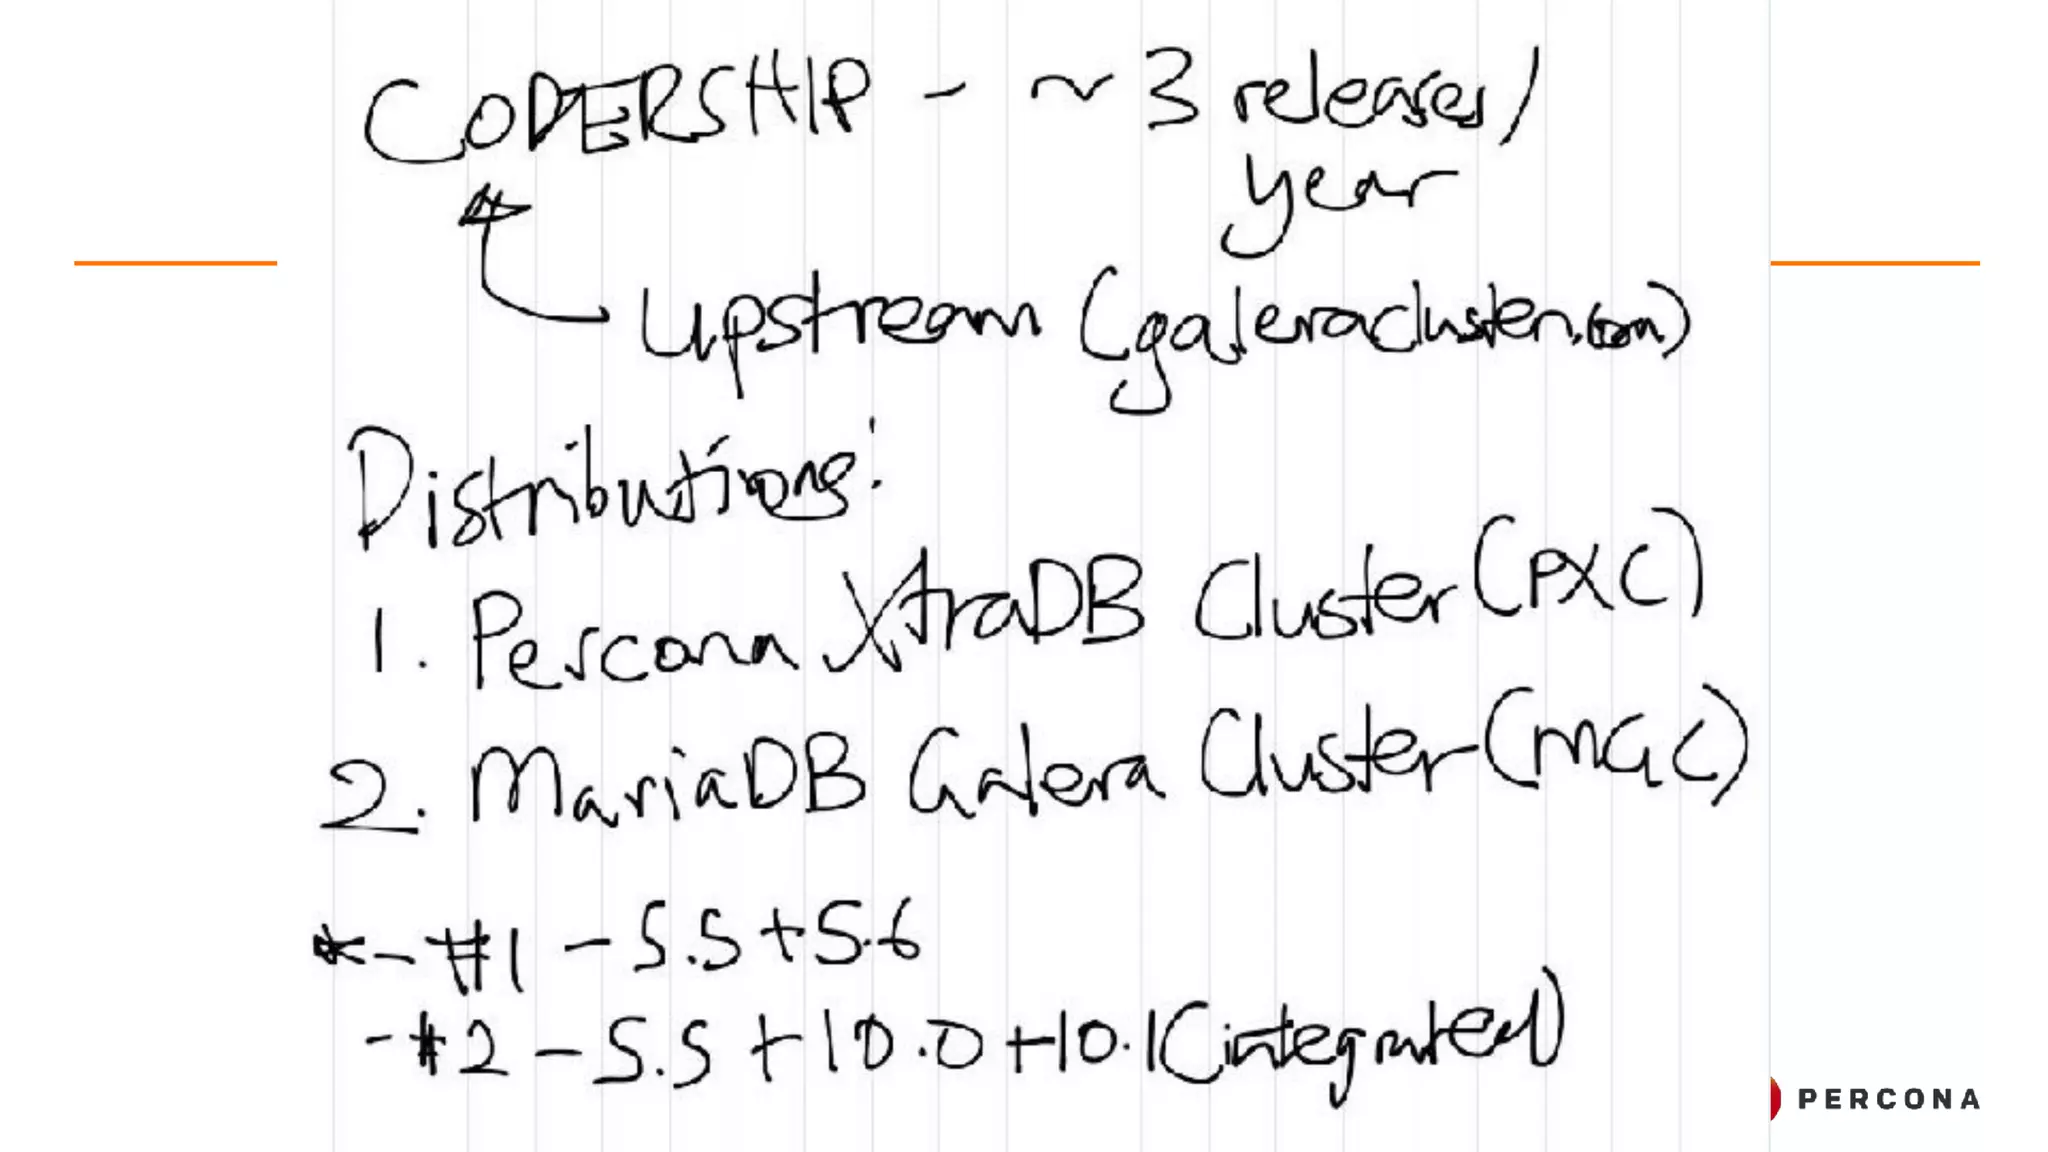 CODERSHIP - ~ 3 releases/
year
Upstream (galeracluster.com)
Distributions:
1. Percona XtraDB Cluster (PXC)
2. MariaDB Galera Cluster (MGC)
* - #1 - 5.5 + 5.6
- #2 - 5.5 + 10.0 + 10.1 (integrated)
PERCONA